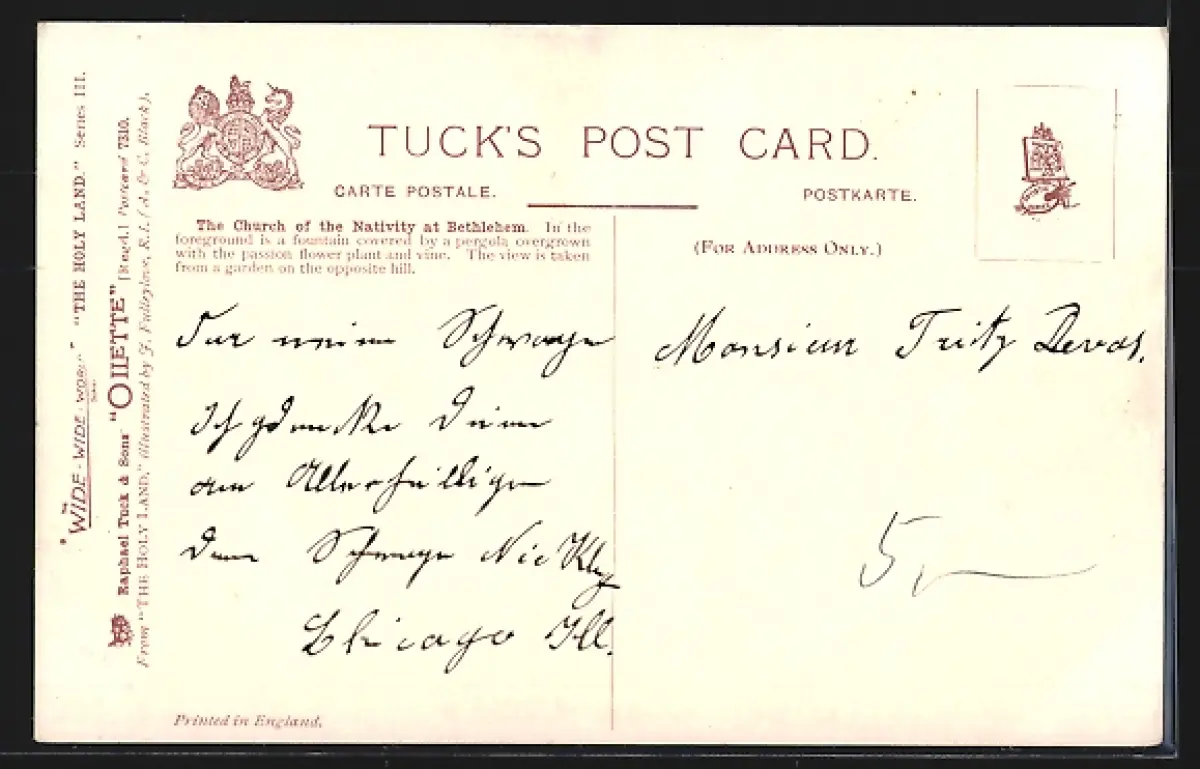 TUCK'S POST CARD.
CARTE POSTALE.
POSTKARTE.
The Church of the Nativity at Bethlehem. In the
foreground is a fountain covered by a pergola overgrown
with the passion flower plant and vine. The view is taken
from a garden on the opposite hill.
(FOR ADDRESS ONLY.)
meine Schwager
Monsieur Fritz Devas.
Ich gedenke Deiner
am Allerheiligen
Dein Schwager Nic Kley
Chicago Ill.
5,
Printed in England.
THE "WIDE-WIDE-WORLD" "THE HOLY LAND." Series III.
Raphael Tuck & Sons' "OILETTE" [Regd.] Postcard 7310.
From "THE HOLY LAND," illustrated by J. Fulleylove, R.I. (A. & C. Black).